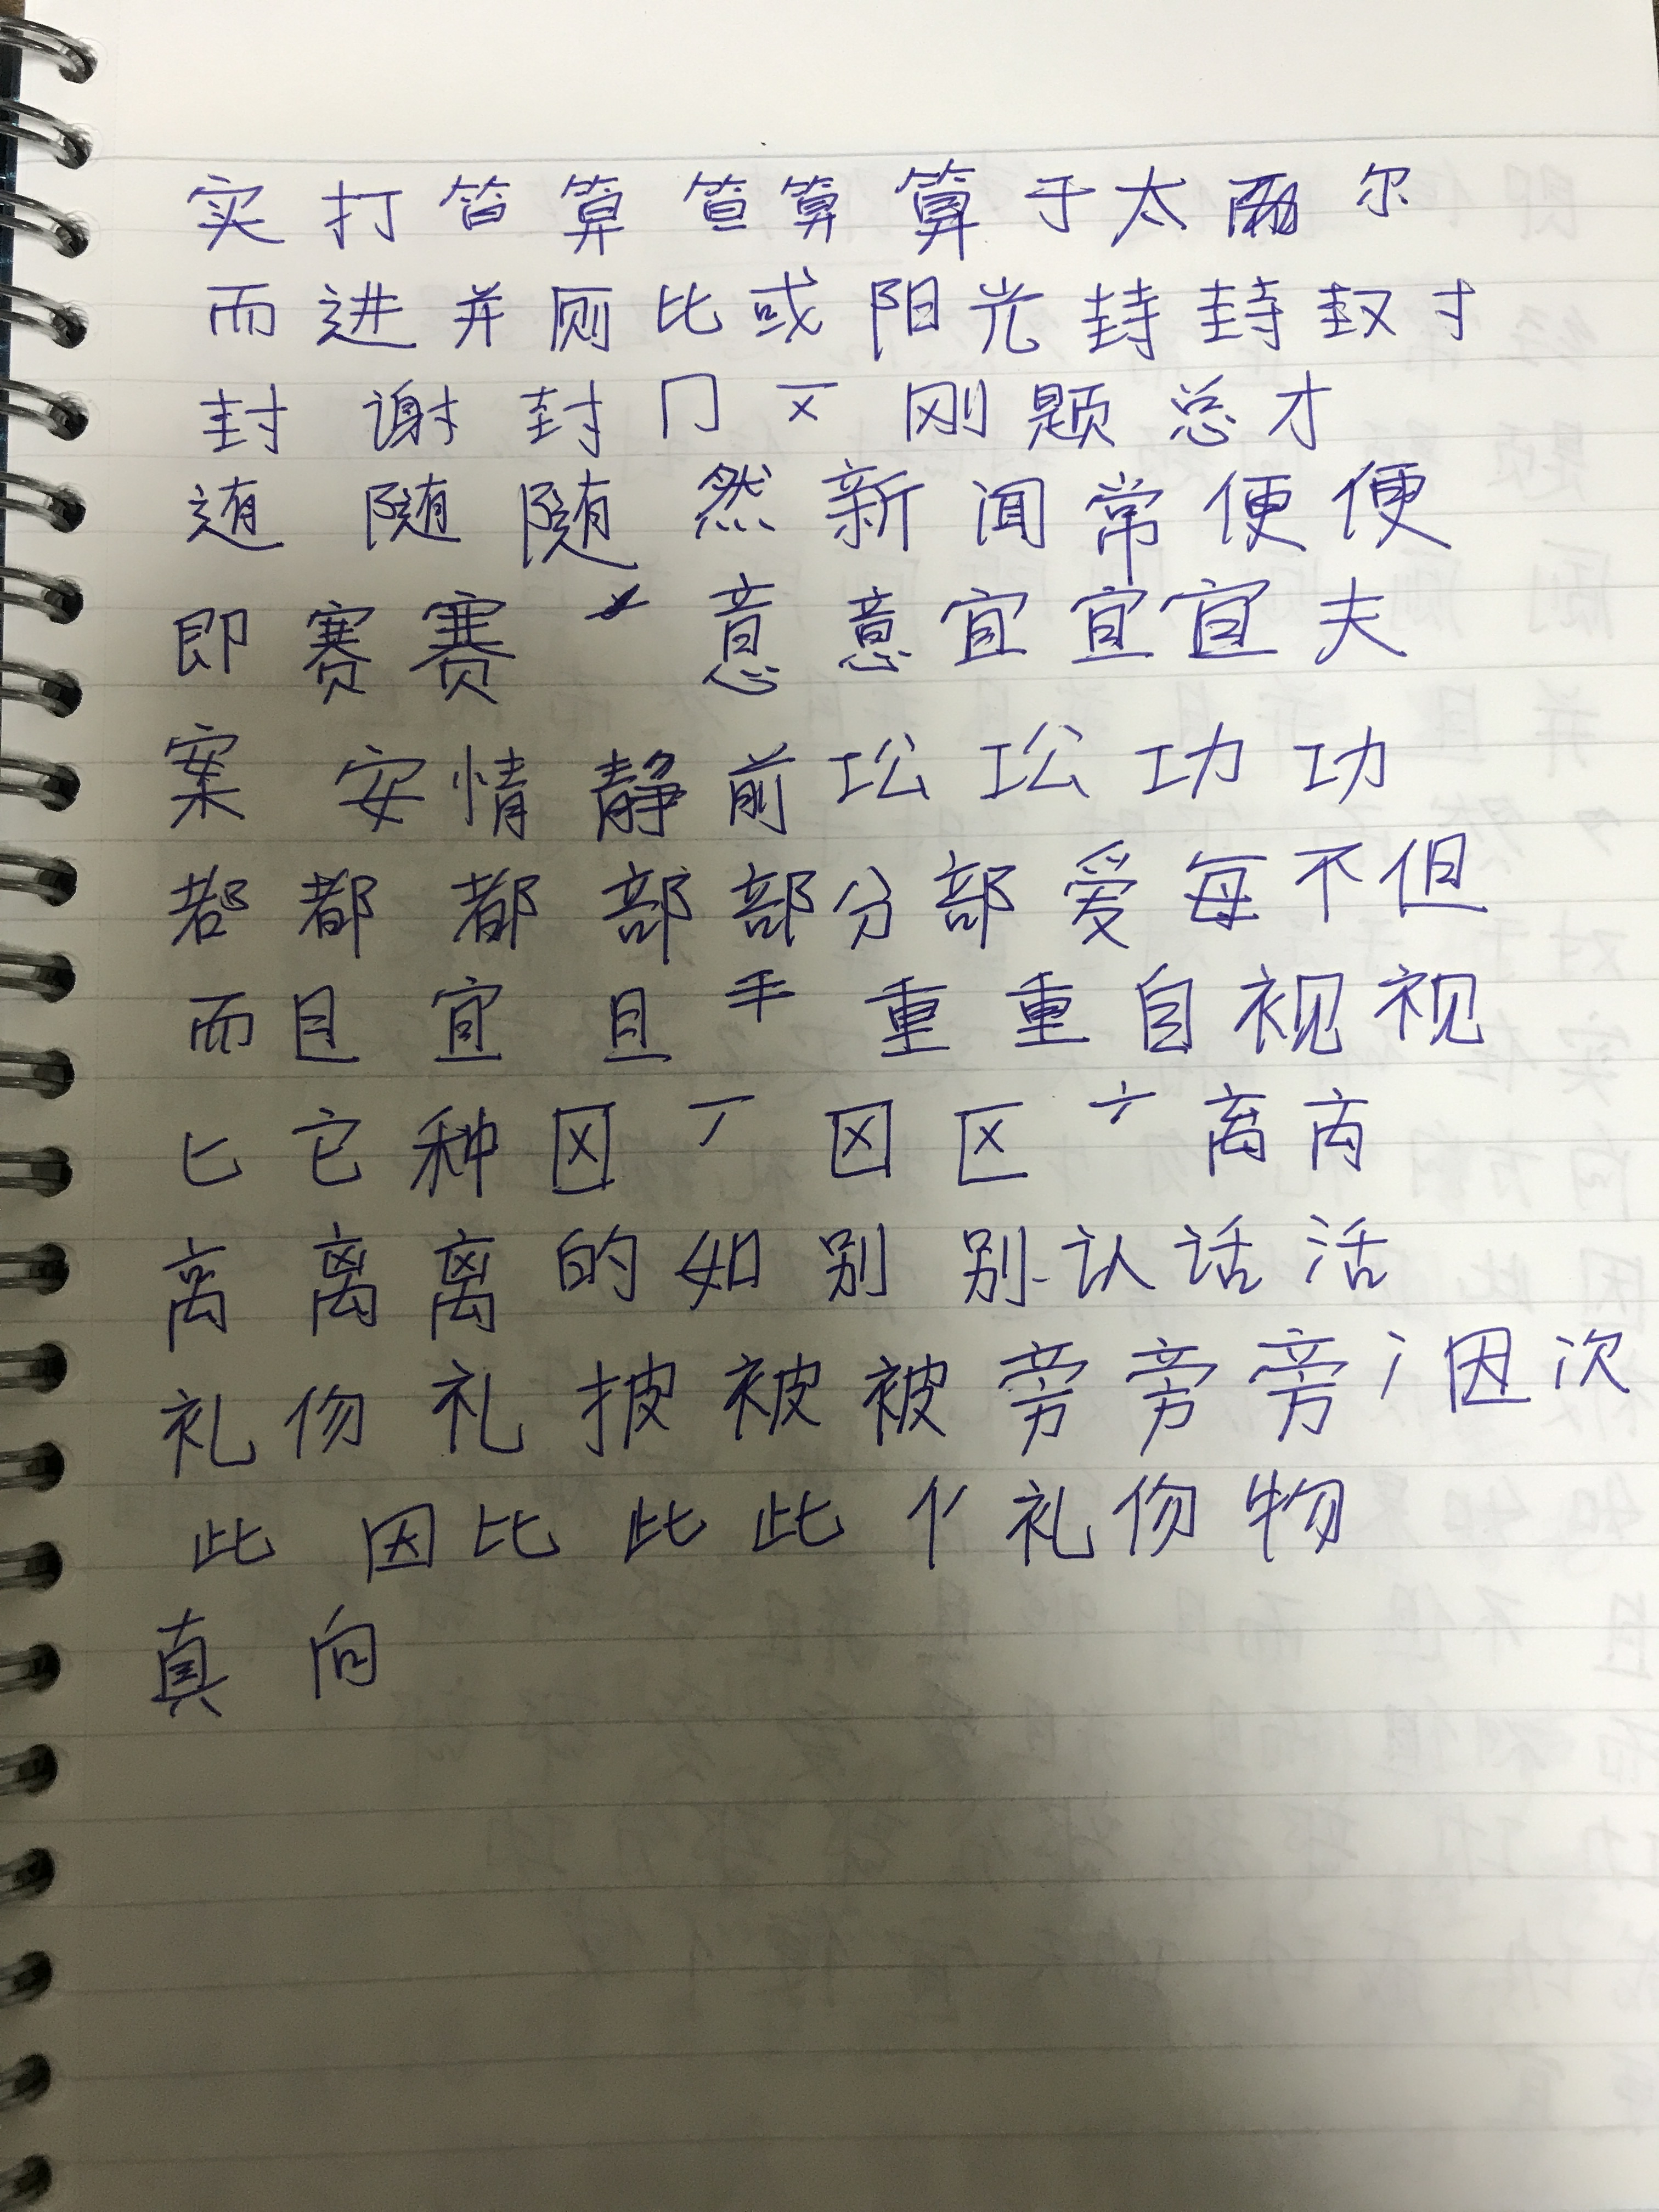 实 打 笞 算 笪 算 算 于 太 尔
而 进 并 厕 比 或 阳 光 封 封 封 寸
封 谢 封 冂 刚 题 总 才
随 随 然 新 闻 常 便 便
即 赛 赛 意 意 宜 宜 宜 夫
案 安 情 静 前 功 功
都 都 都 部 部 分 部 爱 每 不 但
而 且 宜 且 重 重 自 视 视
匕 它 种 区 离
离 离 离 的 如 别 别 认 话 活
礼 份 礼 披 被 被 旁 旁 旁 冫 因 次
此 因 比 此 此 亻 礼 份 物
真 向